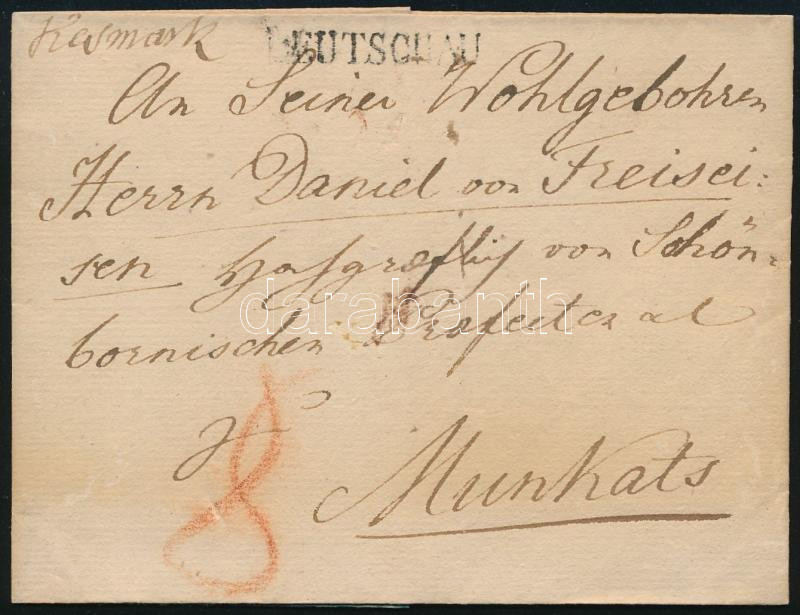 Kesmark LEUTSCHAU
An Seiner Wohlgebohren
Herrn Daniel von Freisei:
sen Hofgräflij von Schön:
bornischen Praefect
Munkats
8
darabanth